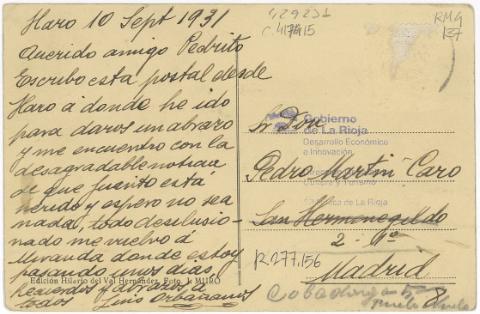 Haro 10 Sept 1931
Querido amigo Pedrito
Escribo esta postal desde
Haro a donde he ido
para daros un abrazo
y me encuentro con la
desagradable noticia
de que Juanito está
herido y espero no sea
nada, todo desilusio-
nado me vuelvo á
Miranda donde estoy
pasando unos días,
Recuerdos y abrazos a
todos Luis Orbañanos
Edición Hilario del Val Hernández. Foto. MURO
429231
C 417415
RMG
137
Gobierno
de La Rioja
Desarrollo Económico
e Innovación
de La Rioja
Sr Don
Pedro Martin Caro
San Hermenegildo
2 - 
R.277.156
Madrid
Cobadonga 5
8